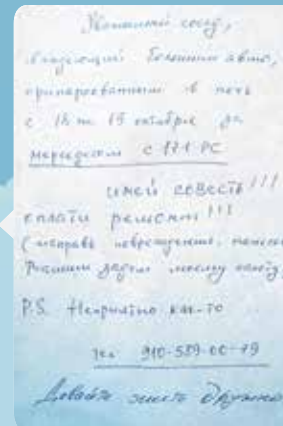 Уважаемый сосед,
владеющий большим авто,
припаркованным в ночь
с 18 на 19 октября за
мерседесом с 171 РС
имей совесть!!!
оплати ремонт!!!
P.S. Неприятно как-то
тел 910-589-00-79
Давайте жить дружно